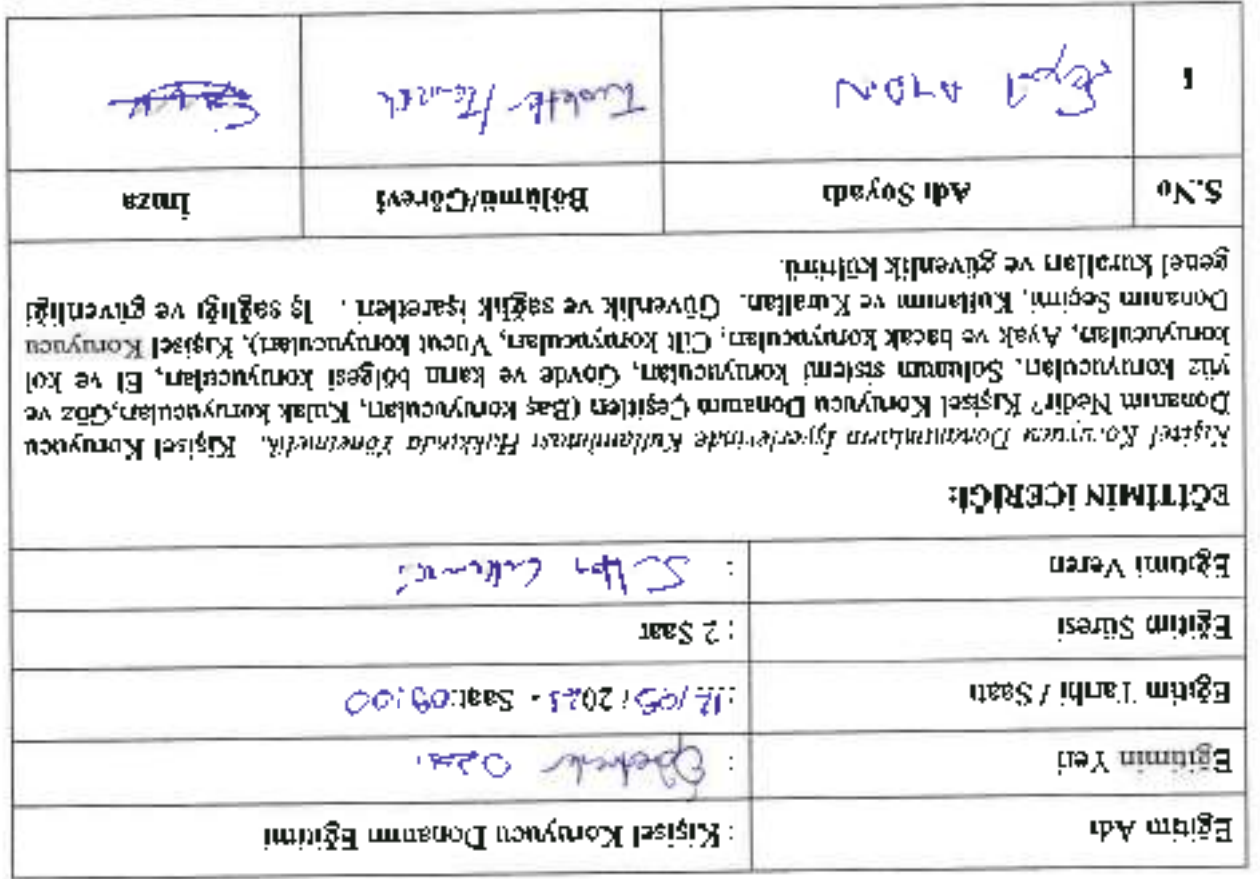 Eğitim Adı : Kişisel Koruyucu Donanım Eğitimi
Eğitimin Yeri :
Eğitim Tarihi / Saati : 12/05/2023 - Saat:09:00
Eğitim Süresi : 2 Saat
Eğitimi Veren :
EĞİTİMİN İÇERİĞİ:
Kişisel Koruyucu Donanımların İşyerlerinde Kullanılması Hakkında Yönetmelik. Kişisel Koruyucu
Donanım Nedir? Kişisel Koruyucu Donanım Çeşitleri (Baş koruyucuları, Kulak koruyucuları,Göz ve
yüz koruyucuları, Solunum sistemi koruyucuları, Gövde ve karın bölgesi koruyucuları, El ve kol
koruyucuları, Ayak ve bacak koruyucuları, Cilt koruyucuları, Vücut koruyucuları), Kişisel Koruyucu
Donanım Seçimi, Kullanımı ve Kuralları. Güvenlik ve sağlık işaretleri . İş sağlığı ve güvenliği
genel kuralları ve güvenlik kültürü.
S.No Adı Soyadı Bölümü/Görevi İmza
1 AYDIN